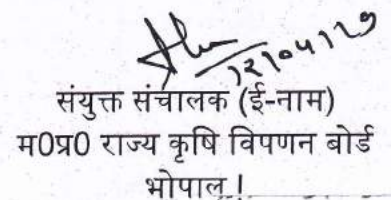 12/04/19
संयुक्त संचालक (ई-नाम)
म0प्र0 राज्य कृषि विपणन बोर्ड
भोपाल !